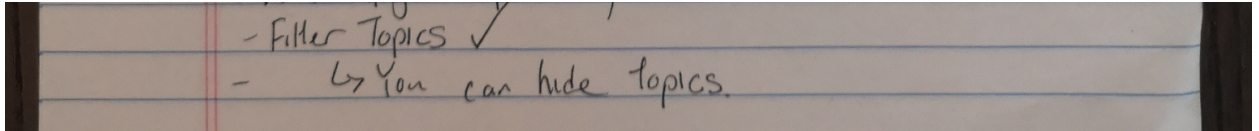 - Filter Topics ✓
- ↳ You can hide topics.